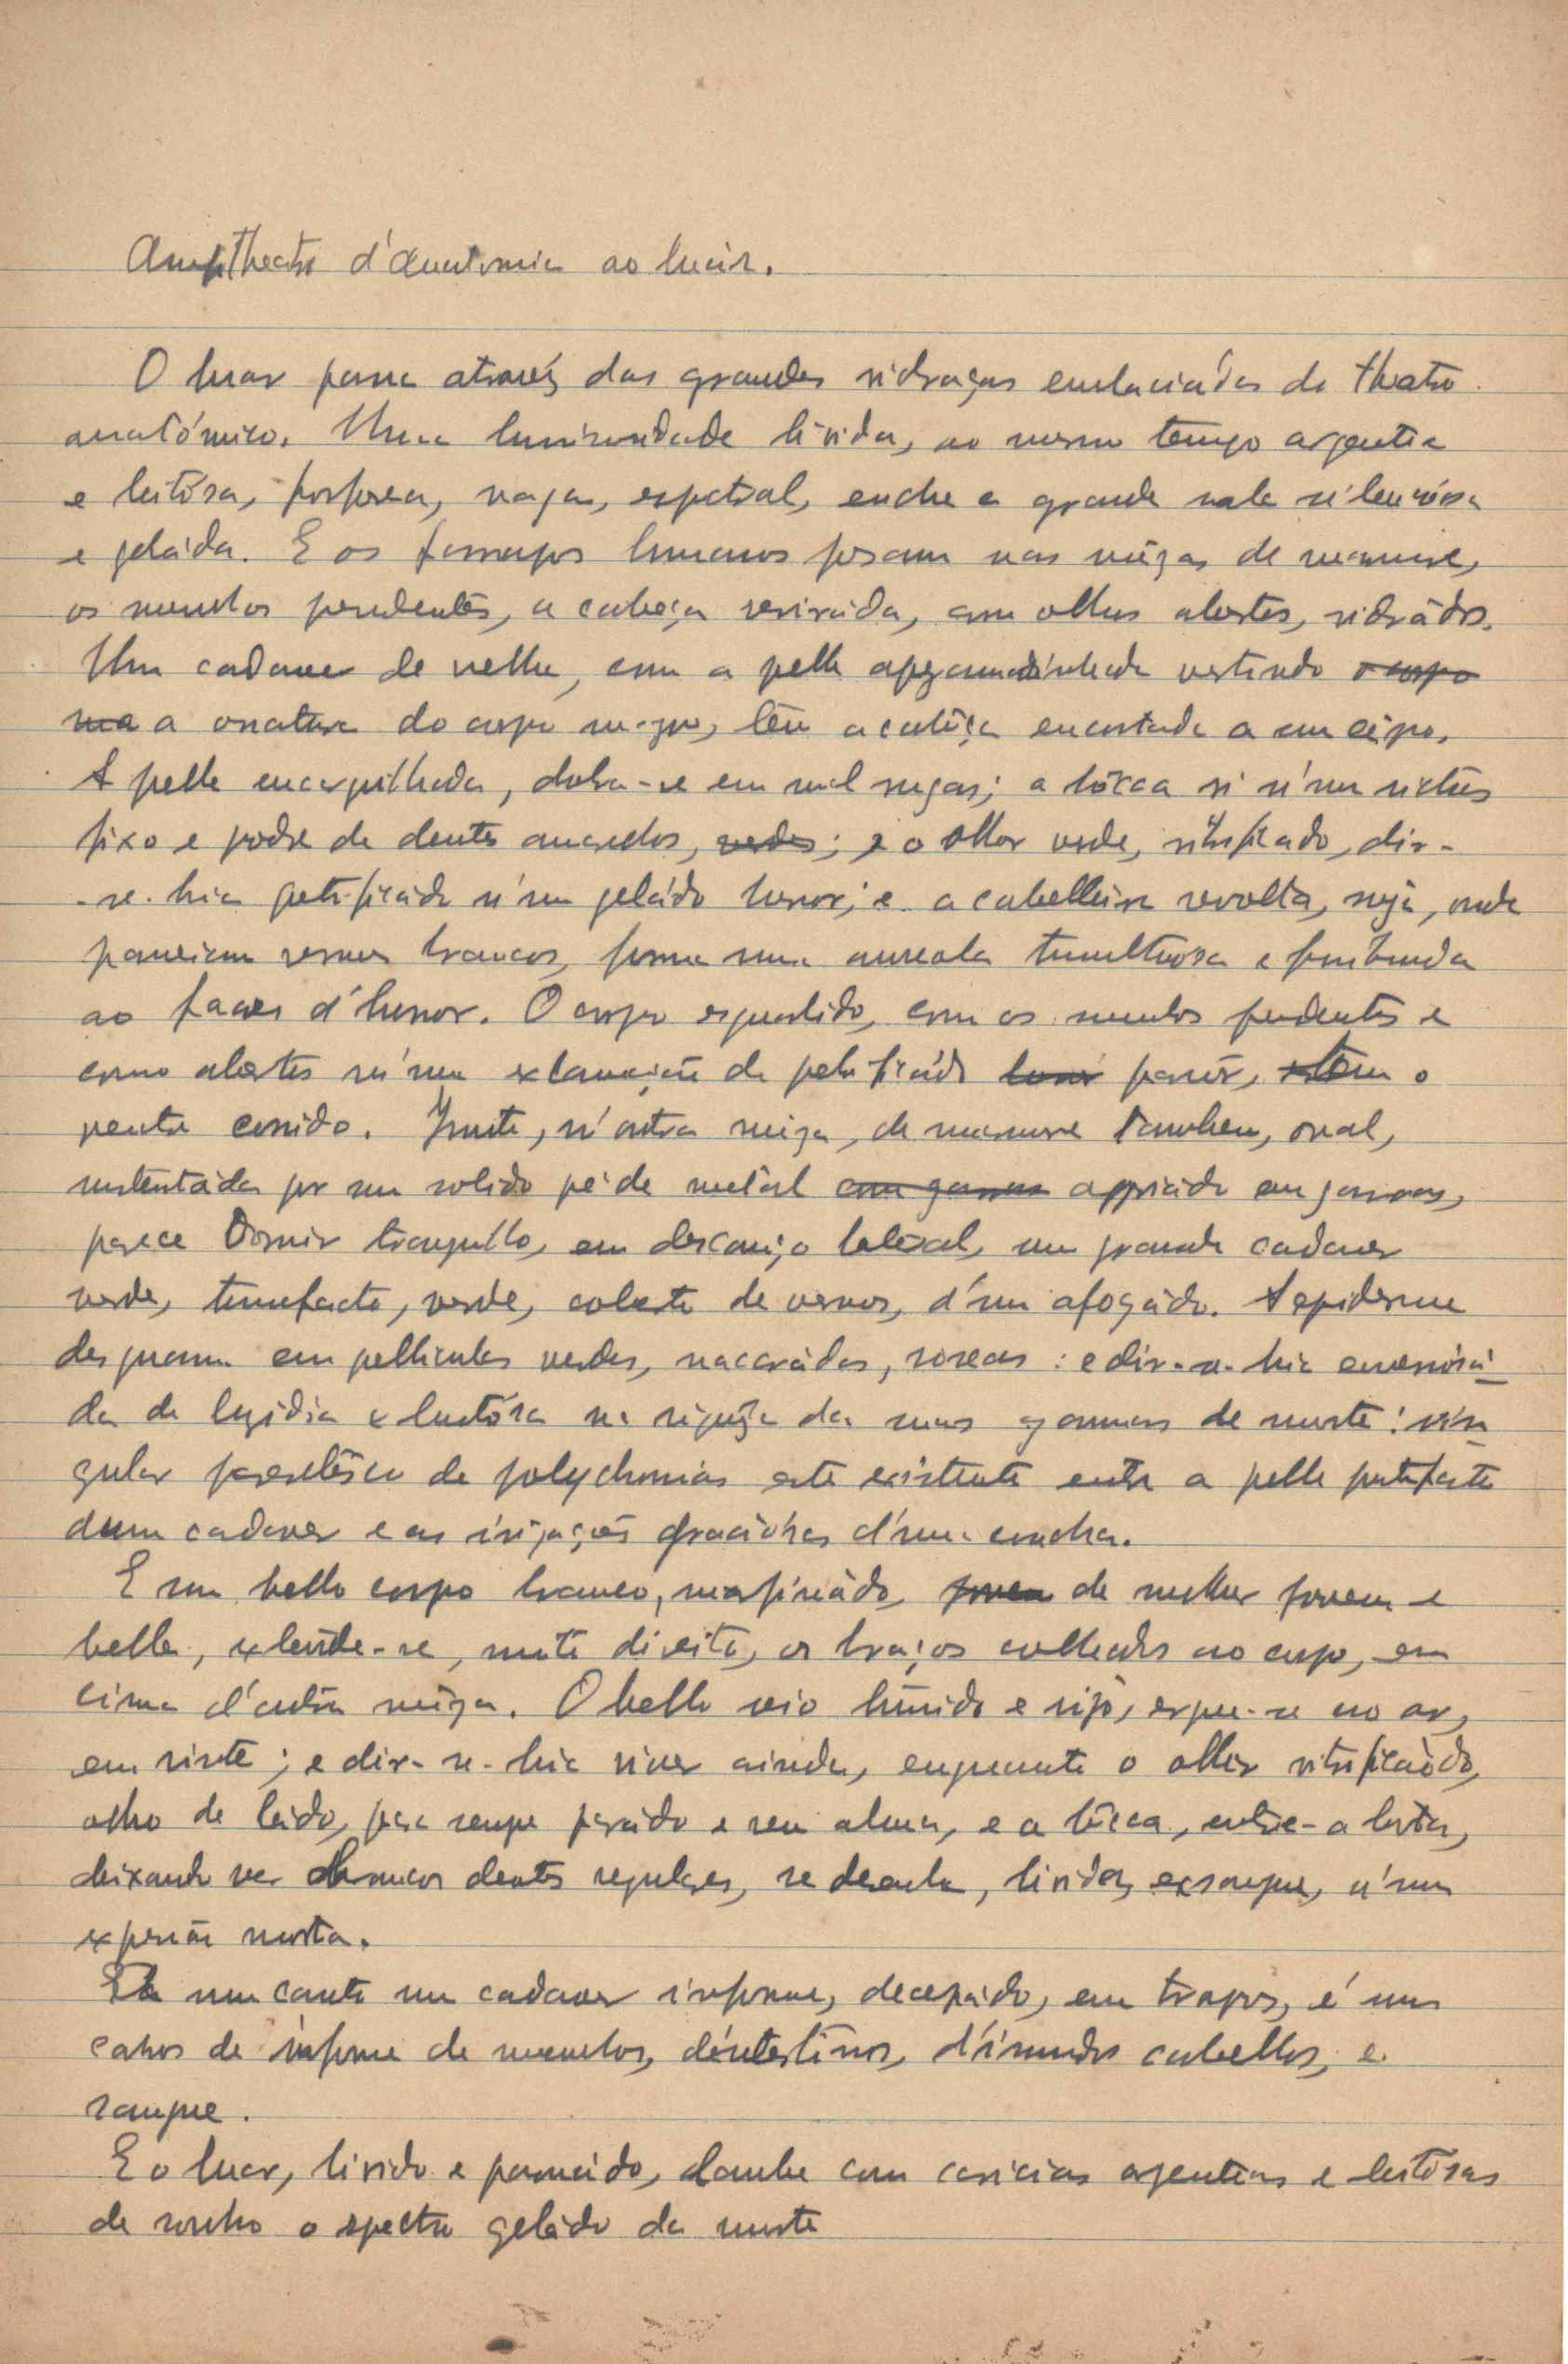 Amphitheatro d'Anatomia ao luar.
O luar passa atravéz das grandes vidraças embaciádas do theatro
anatómico. Uma luminosidade livida, ao mesmo tempo argentea
e leitósa, fosforea, vaga, espectral, enche a grande sala silenciósa
e geláda. E os farrapos humanos posam nas mêzas de marmore,
os membros pendentes, a cabeça reviráda, com olhos abertos, vidrádos.
Um cadaver de velha, com a pelle apergaminhada vestindo o corpo
ma a ossatura do corpo magro, têm a cabêça encostada a um cêpo.
A pelle encarquilhada, dobra-se em mil rugas; a bôcca ri n'um rictus
fixo e podre de dentes amarellos, verdes; e o olhar verde, vitrificado, dir-
-se-hia petrificádo n'um geládo horror; e a cabelleira revolta, suja, onde
passeiam vermes brancos, forma uma aureola tumultuósa e
ao facies d'horror. O corpo esqualido, com os membros pendentes e
como abertos n'uma exclamação de petrificádo pavôr, têm o
ventre corrido. Junto, n'outra mêza, de marmore tambem, oval,
sustentáda por um solido pé de metal com garras appoiádo em garras,
parece dormir tranquillo, em descanço lateral, um grande cadaver
verde, tumefacto, verde, coberto de vermes, d'um afogádo. A epiderme
desquama em pelliculas verdes, nacarádas, roseas: e dir-se-hia
da de na riquêza das suas gammas de morte: sin
gular parentêsco de polychromias este existente entre a pelle putrefacta
dum cadaver e as irisações graciósas d'uma concha.
E um bello corpo branco, marfinádo, jovem de mulher jovem e
bella, extende-se, muito direito, os braços collados ao corpo, em
cima d'outra mêza. O bello seio túmido e rijo, ergue-se no ar,
em riste; e dir-se-hia viver ainda, emquanto o olhar vitrificádo,
olho de para sempre parádo e sem alma, e a bôcca, entre-aberta,
deixando ver brancos dentes regulares, se livida, exsangue, n'uma
expressão morta.
E a um canto um cadaver informe, decepádo, em trapos, é um
cahos de informe de membros, d'intestinos, d'ímundos cabellos, e
sangue.
E o luar, livido e parado, banha com caricias argenteas e leitósas
de sonho o spectro geládo da morte